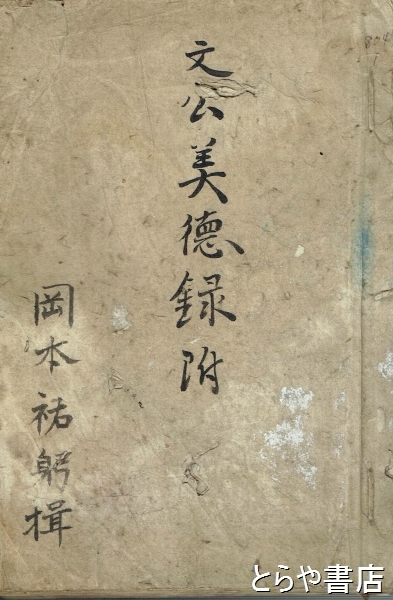 文公美徳録附
岡本祐躬揖
とらや書店